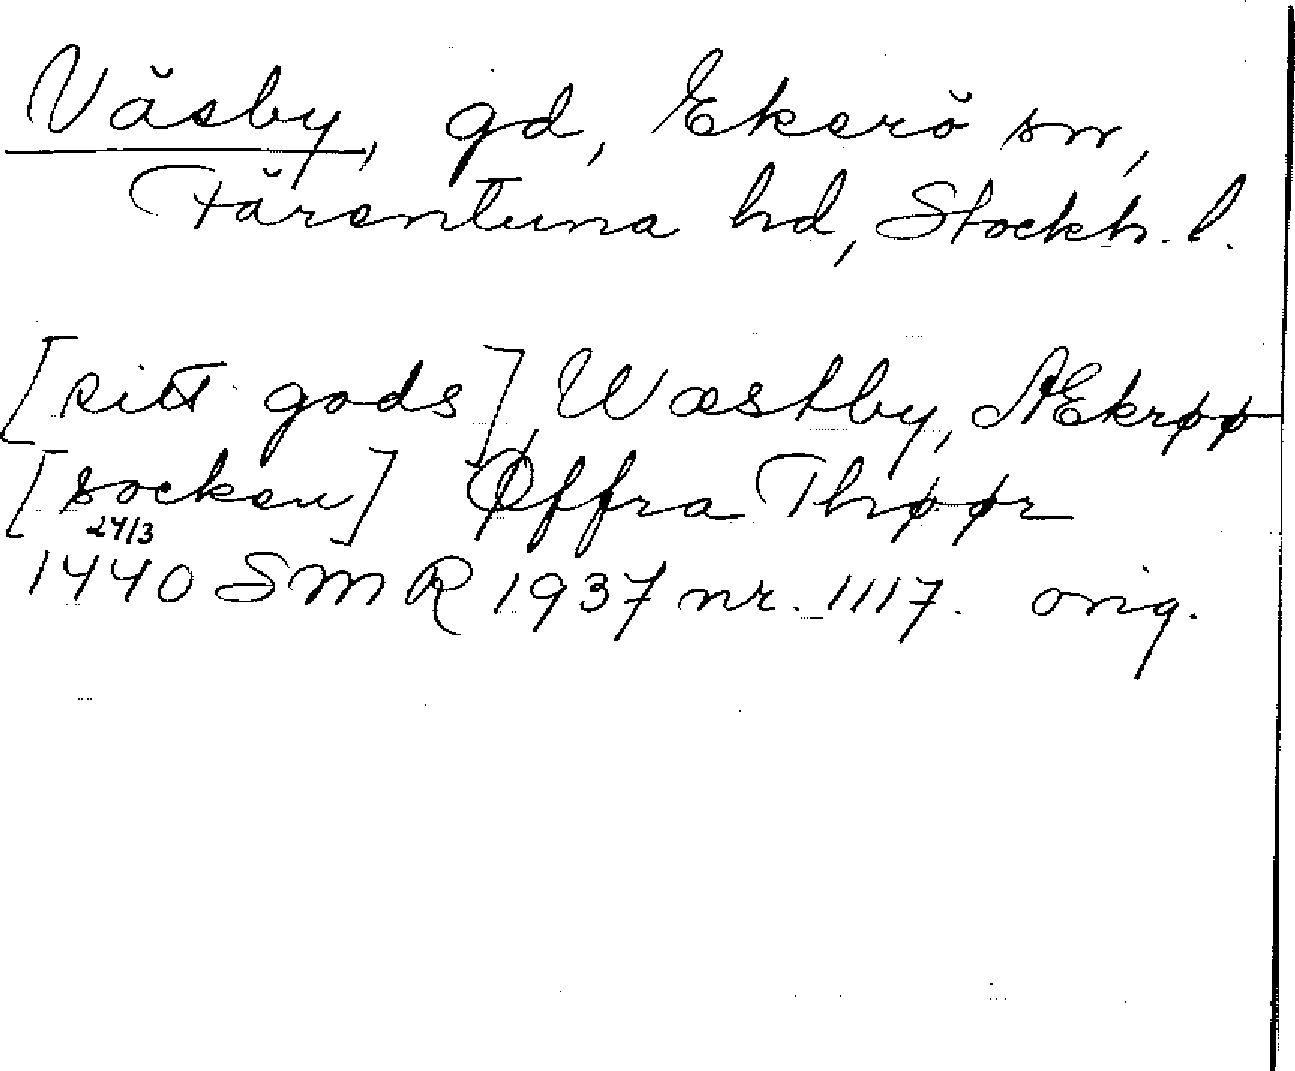 Väsby, gd, Ekerö sn,
Färentuna hd, Stockh. l.
[sitt gods] Wæstby, Ækrøø
[socken] Øffra Thrøør
24/3
1440 SMR 1937 nr. 1117. orig.